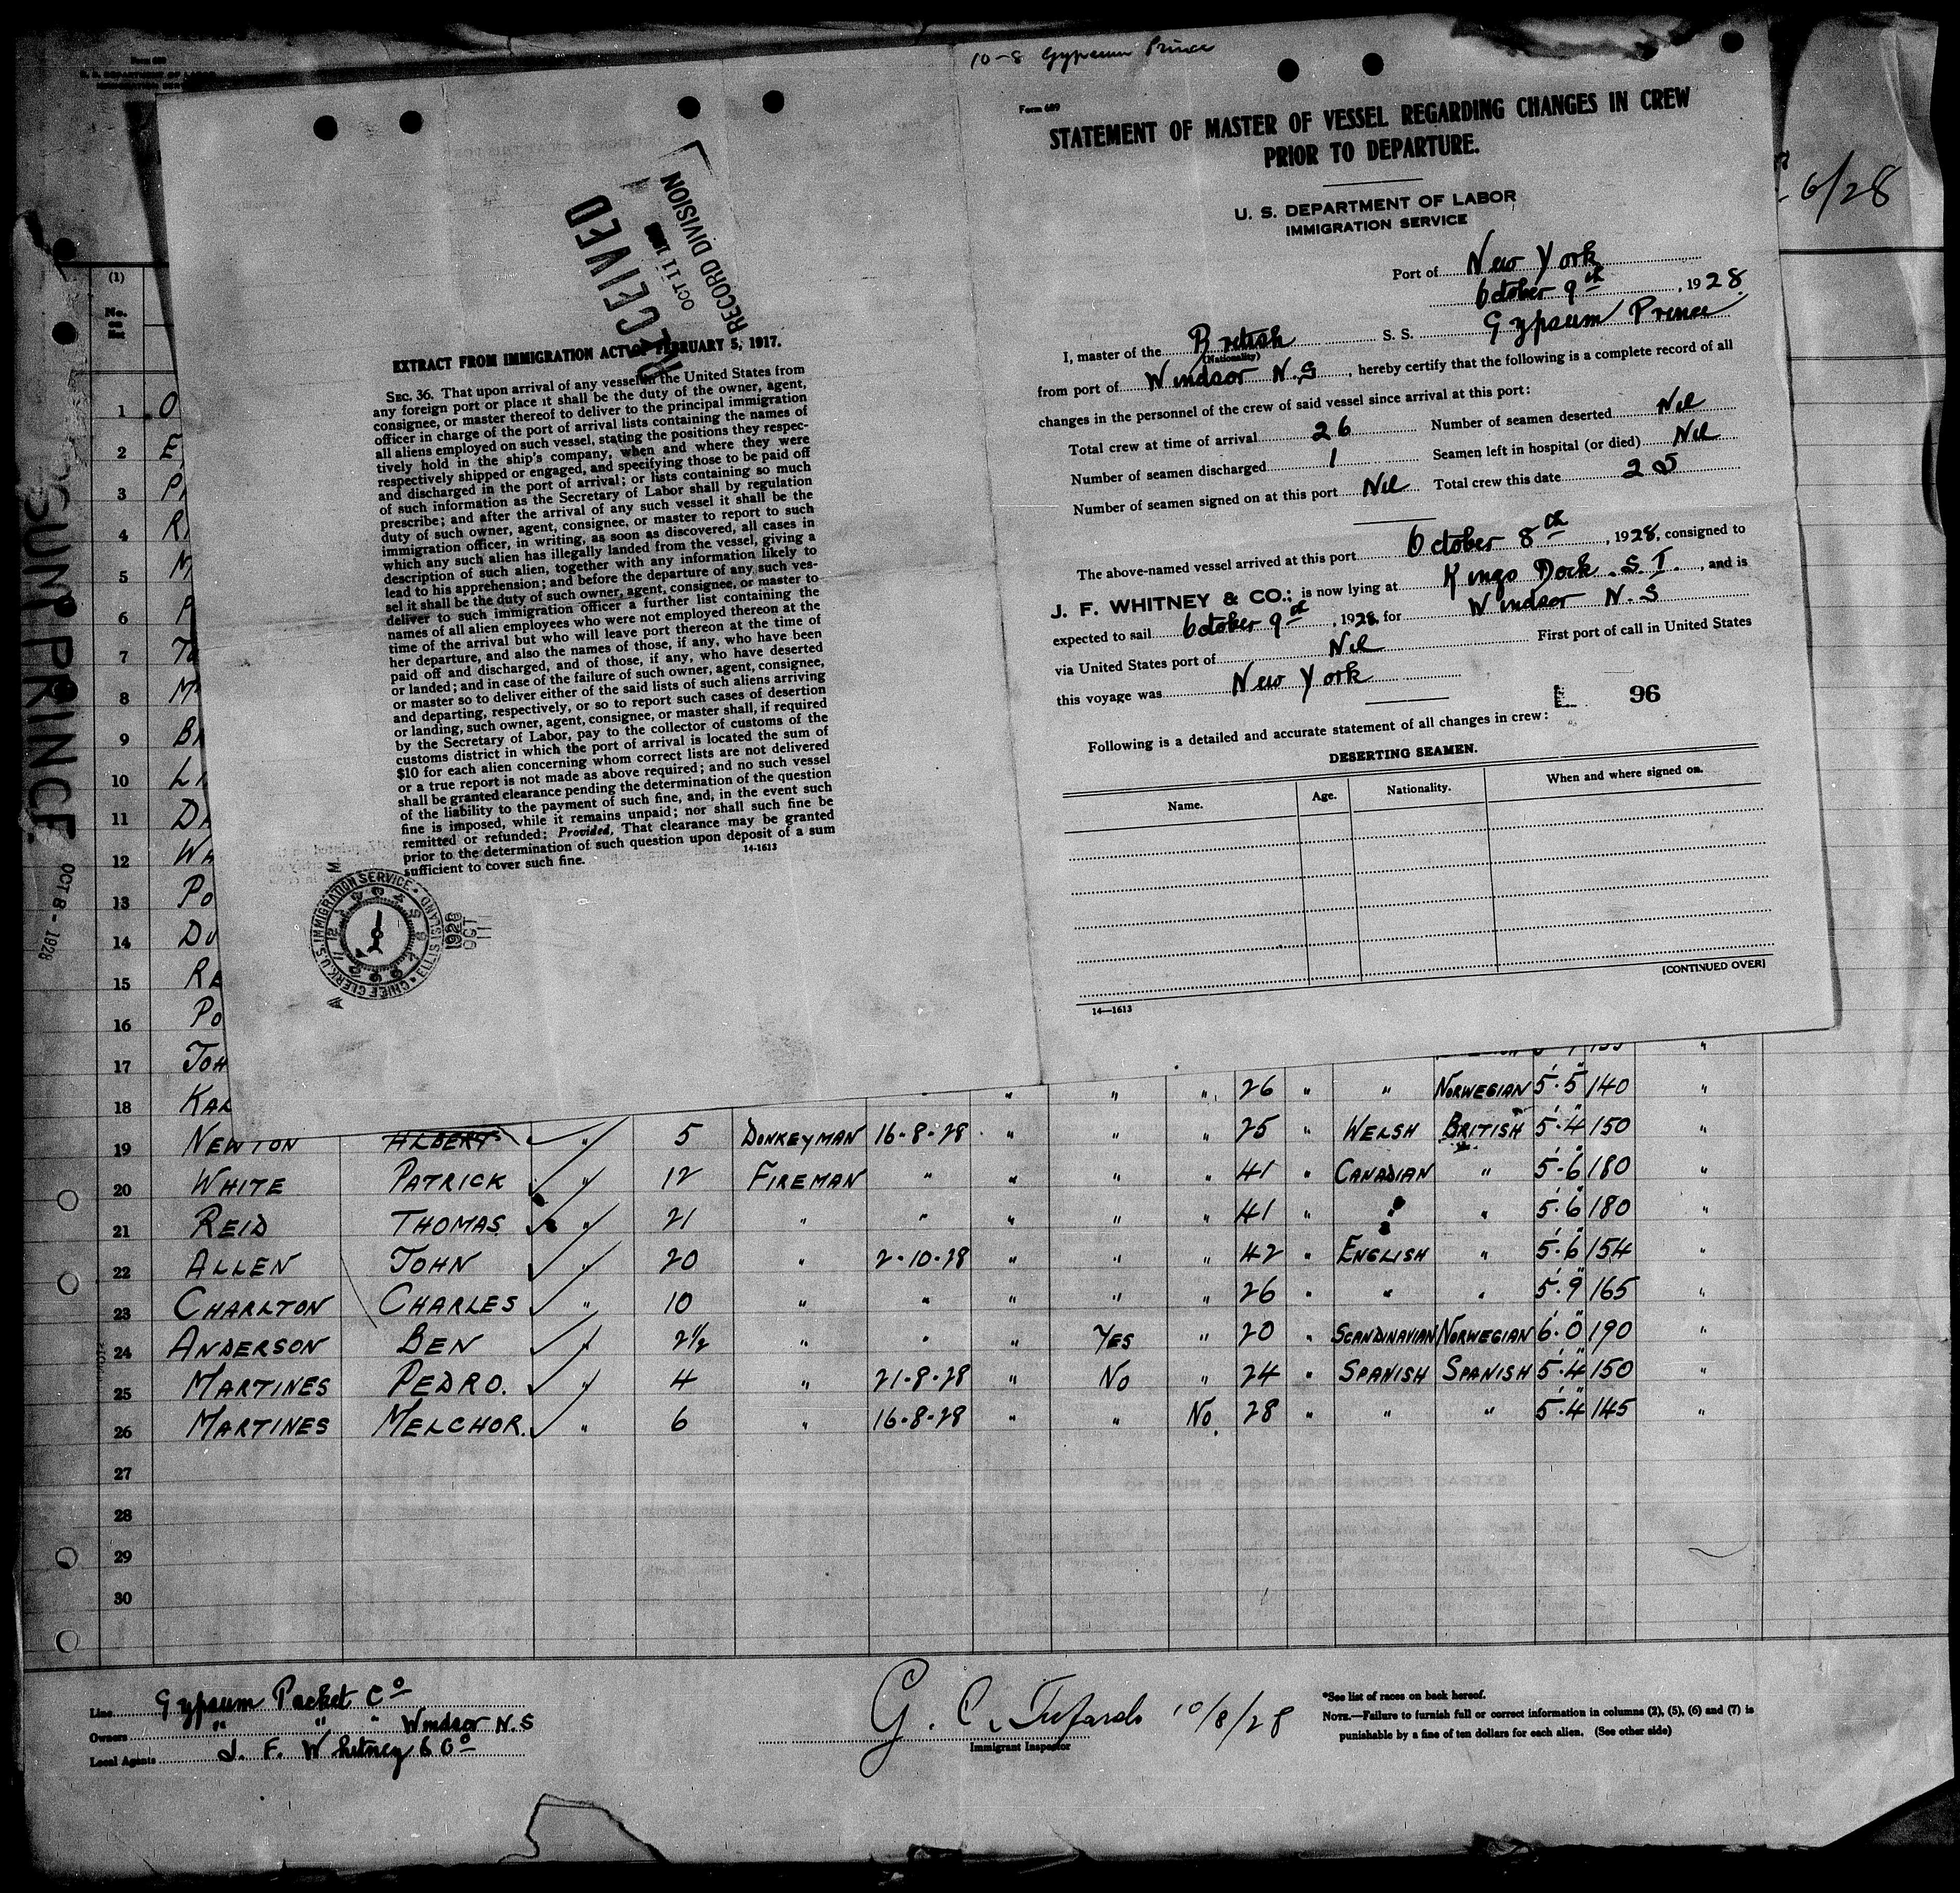 10-8 Gypsum Prince
Form 689
STATEMENT OF MASTER OF VESSEL REGARDING CHANGES IN CREW
PRIOR TO DEPARTURE.
U. S. DEPARTMENT OF LABOR
IMMIGRATION SERVICE
Port of New York
October 9th, 1928.
I, master of the British S. S. Gypsum Prince
(Nationality)
from port of Windsor N.S, hereby certify that the following is a complete record of all
changes in the personnel of the crew of said vessel since arrival at this port:
Total crew at time of arrival 26 Number of seamen deserted Nil
Number of seamen discharged 1 Seamen left in hospital (or died) Nil
Number of seamen signed on at this port Nil Total crew this date 25
The above-named vessel arrived at this port October 8th, 1928, consigned to
J. F. WHITNEY & CO.; is now lying at Kings Dock. S. I., and is
expected to sail October 9th, 1928, for Windsor N.S
via United States port of Nil First port of call in United States
this voyage was New York
96
Following is a detailed and accurate statement of all changes in crew:
DESERTING SEAMEN.
Name. Age. Nationality. When and where signed on.
[CONTINUED OVER]
14—1613
RECEIVED
OCT 11
RECORD DIVISION
EXTRACT FROM IMMIGRATION ACT OF FEBRUARY 5, 1917.
SEC. 36. That upon arrival of any vessel in the United States from
any foreign port or place it shall be the duty of the owner, agent,
consignee, or master thereof to deliver to the principal immigration
officer in charge of the port of arrival lists containing the names of
all aliens employed on such vessel, stating the positions they respec-
tively hold in the ship's company, when and where they were
respectively shipped or engaged, and specifying those to be paid off
and discharged in the port of arrival; or lists containing so much
of such information as the Secretary of Labor shall by regulation
prescribe; and after the arrival of any such vessel it shall be the
duty of such owner, agent, consignee, or master to report to such
immigration officer, in writing, as soon as discovered, all cases in
which any such alien has illegally landed from the vessel, giving a
description of such alien, together with any information likely to
lead to his apprehension; and before the departure of any such ves-
sel it shall be the duty of such owner, agent, consignee, or master to
deliver to such immigration officer a further list containing the
names of all alien employees who were not employed thereon at the
time of the arrival but who will leave port thereon at the time of
her departure, and also the names of those, if any, who have been
paid off and discharged, and of those, if any, who have deserted
or landed; and in case of the failure of such owner, agent, consignee,
or master so to deliver either of the said lists of such aliens arriving
and departing, respectively, or so to report such cases of desertion
or landing, such owner, agent, consignee, or master shall, if required
by the Secretary of Labor, pay to the collector of customs of the
customs district in which the port of arrival is located the sum of
$10 for each alien concerning whom correct lists are not delivered
or a true report is not made as above required; and no such vessel
shall be granted clearance pending the determination of the question
of the liability to the payment of such fine, and, in the event such
fine is imposed, while it remains unpaid; nor shall such fine be
remitted or refunded: Provided, That clearance may be granted
prior to the determination of such question upon deposit of a sum
sufficient to cover such fine.
14-1613
CHIEF CLERK U.S. IMMIGRATION SERVICE ELLIS ISLAND
1928
OCT
11
6/28
SUM PRINCE
OCT 8 - 1928
(1)
No.
on
list
1 O
2 E
3 P
4 R
5
6
7 To
8 M
9 B
10 L
11 D
12 WA
13 Po
14 Du
15 RE
16 Po
17 JOH
18 KAL " " " 26 " " NORWEGIAN 5.5 140 "
19 NEWTON ALBERT " 5 DONKEYMAN 16-8-28 " " " 25 " WELSH BRITISH 5.4 150 "
20 WHITE PATRICK " 12 FIREMAN " " " " 41 " CANADIAN " 5.6 180 "
21 REID THOMAS " 21 " " " " " 41 " " " 5.6 180 "
22 ALLEN JOHN " 20 " 2-10-28 " " " 42 " ENGLISH " 5.6 154 "
23 CHARLTON CHARLES " 10 " " " " " 26 " " " 5.9 165 "
24 ANDERSON BEN " 2½ " " " YES " 20 " SCANDINAVIAN NORWEGIAN 6.0 190 "
25 MARTINES PEDRO. " 4 " 21-8-28 " NO " 24 " SPANISH SPANISH 5.4 150 "
26 MARTINES MELCHOR. " 6 " 16-8-28 " " NO. 28 " " " 5.4 145 "
27
28
29
30
Line Gypsum Packet Co
Owners " " " Windsor N.S
Local Agents J. F. Whitney & Co
10/8/28
Immigrant Inspector
*See list of races on back hereof.
NOTE.—Failure to furnish full or correct information in columns (2), (5), (6) and (7) is
punishable by a fine of ten dollars for each alien. (See other side)